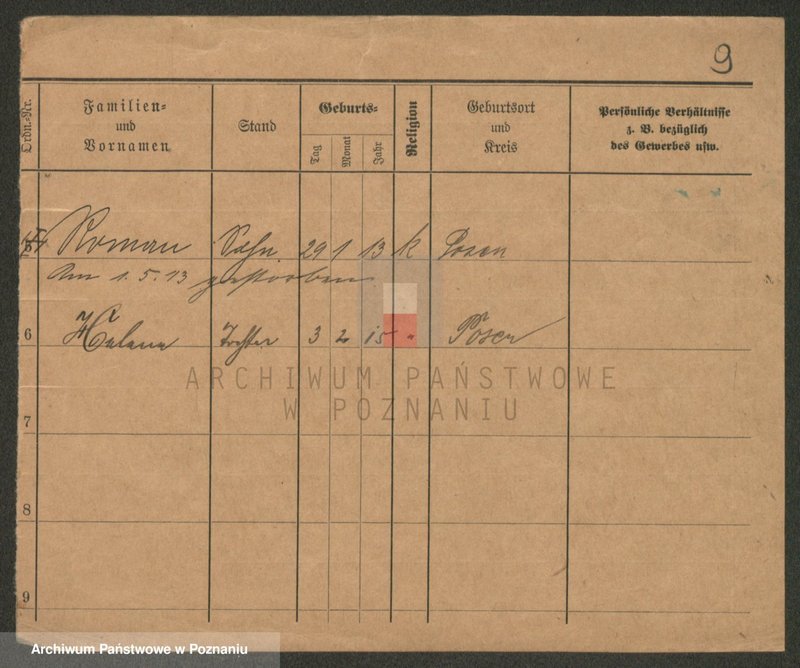 9
Ordn.-Nr.
Familien-
und
Vornamen
Stand
Geburts-
Tag
Monat
Jahr
Religion
Geburtsort
und
Kreis
Persönliche Verhältnisse
z. B. bezüglich
des Gewerbes usw.
Roman Sohn 29 1 13 k Posen
Am 1.5.13 gestorben.
6 Helene Tochter 3 2 15 " Posen
ARCHIWUM PAŃSTWOWE
W POZNANIU
7
8
9
Archiwum Państwowe w Poznaniu